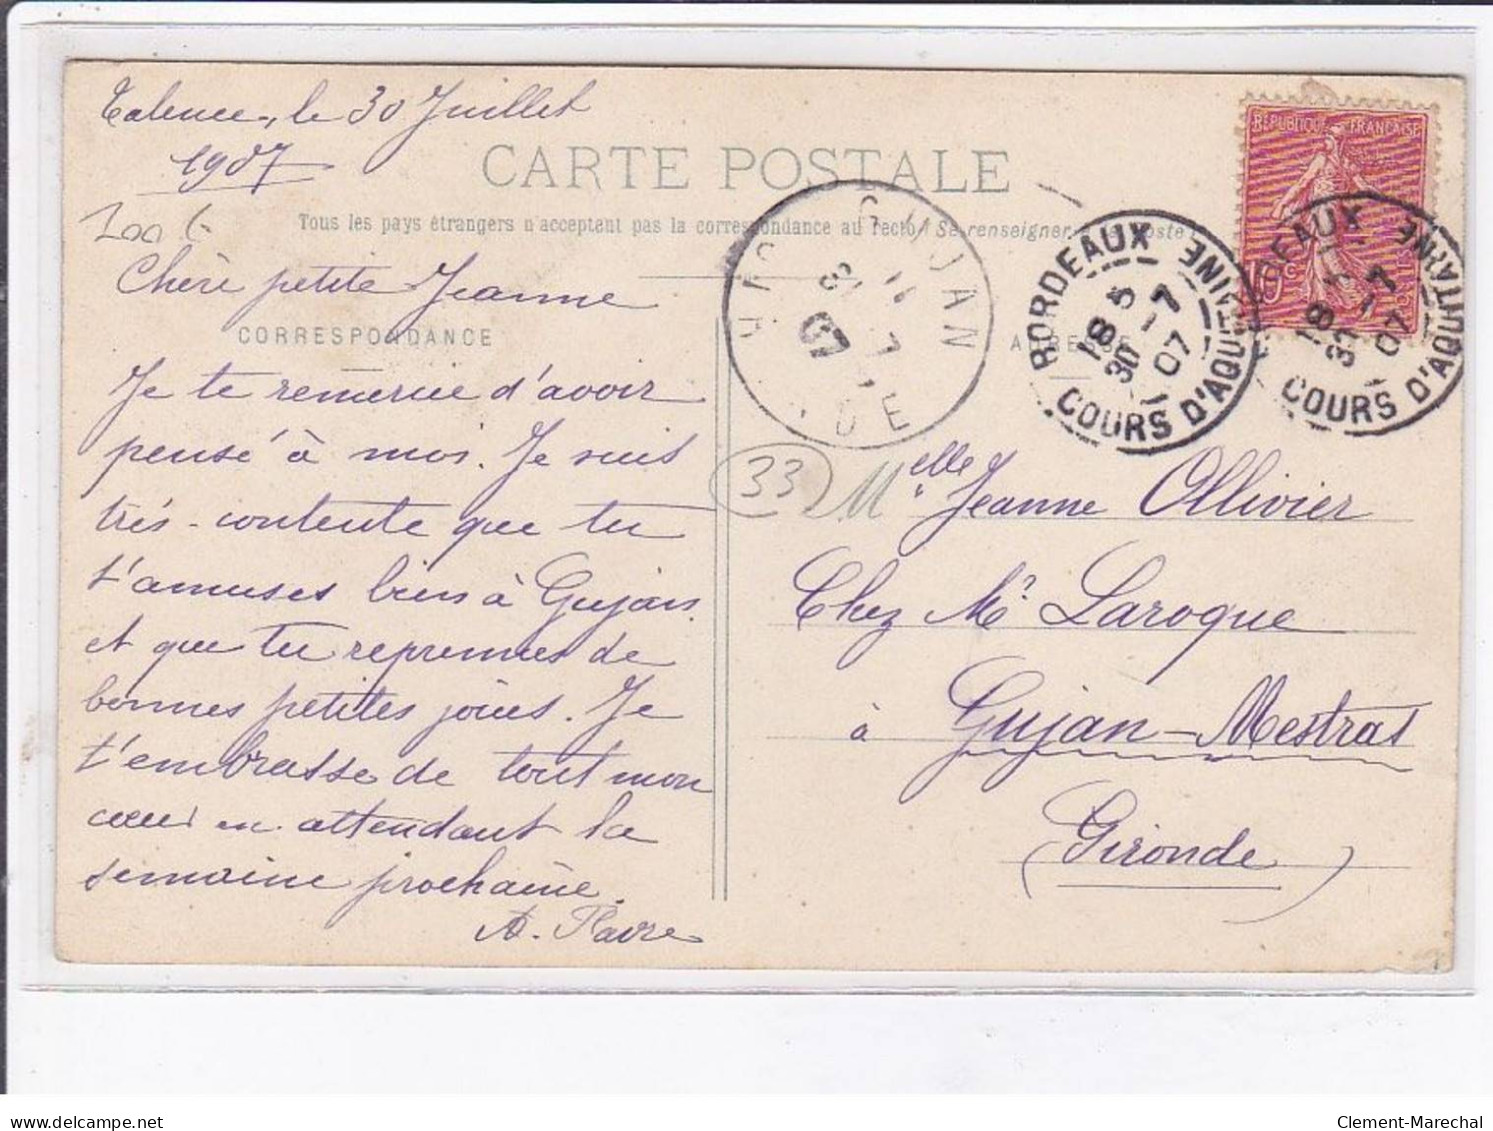 Talence, le 30 Juillet
1907
CARTE POSTALE
Tous les pays étrangers n'acceptent pas la correspondance au recto (Se renseigner à la Poste)
Chère petite Jeanne
CORRESPONDANCE
ADRESSE
Je te remercie d'avoir
pensé à moi. Je suis
très-contente que tu
t'amuses bien à Gujan
et que tu reprennes de
bonnes petites joues. Je
t'embrasse de tout mon
cœur en attendant la
semaine prochaine.
33
Melle Jeanne Ollivier
Chez Mr. Laroque
à Gujan-Mestras
(Gironde)
REPUBLIQUE FRANÇAISE
10c
BORDEAUX
COURS D'AQUITAINE
18 5
30 -7
07
BORDEAUX
COURS D'AQUITAINE
07
GUJAN
07
delcampe.net
Clement-Marechal